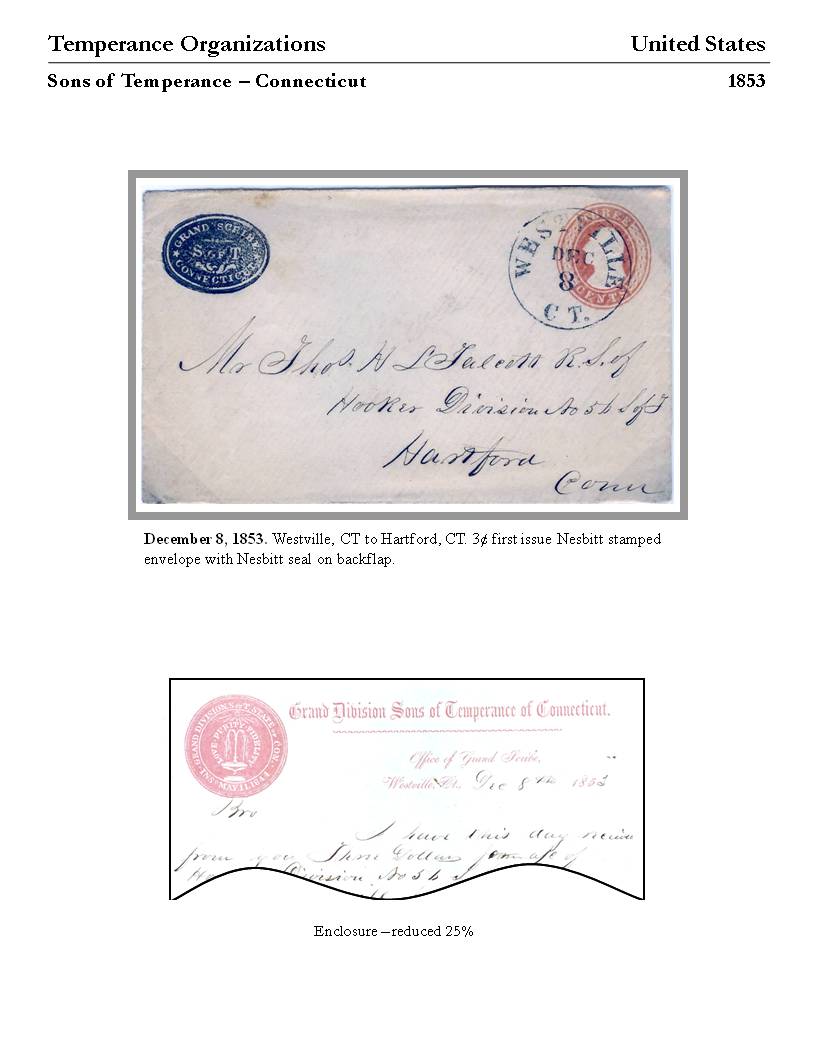 Temperance Organizations United States
Sons of Temperance – Connecticut 1853
GRAND SCRIBE
S of T
CONNECTICUT
WESTVILLE
DEC
8
CT.
THREE
CENTS
Mr Thos. H L Talcott R. S. of
Hooker Division No 56 S of T
Hartford
Conn
December 8, 1853. Westville, CT to Hartford, CT. 3¢ first issue Nesbitt stamped
envelope with Nesbitt seal on backflap.
GRAND DIVISION S. of T. STATE OF CON.
LOVE PURITY FIDELITY
INS. MAY 11. 1844
Grand Division Sons of Temperance of Connecticut.
Office of Grand Scribe,
Westville, Ct., Dec 8th 1853
Bro
I have this day receiv
from you Three Dollars
Division No 56 S
Enclosure – reduced 25%